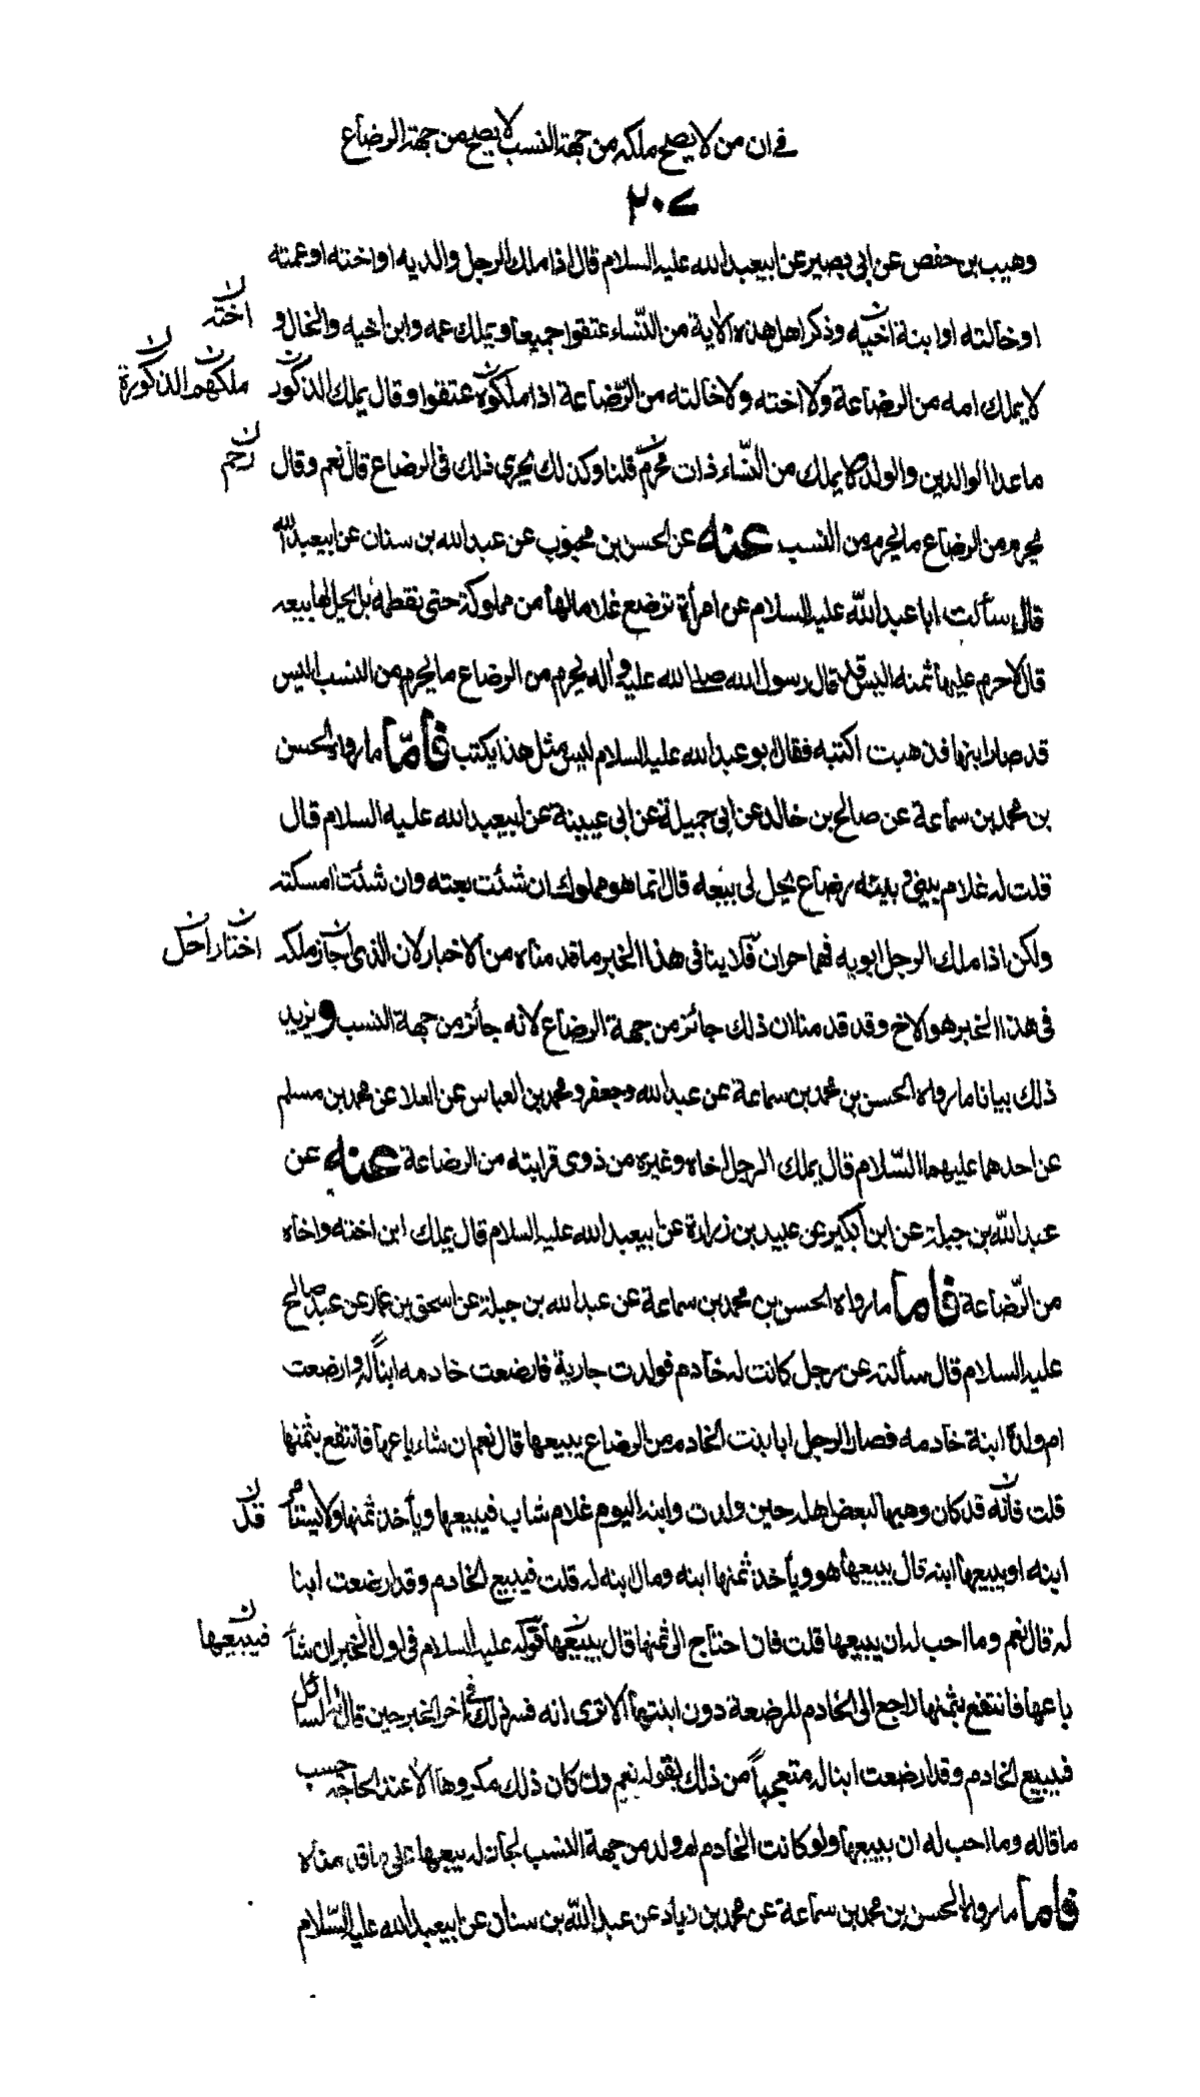 في ان من لا يصلح ملكه من جهة النسب لا يصح من جهة الرضاع
٢٠٧
وهيب بن حفص عن ابي بصير عن ابيعبد الله عليه السلام قال اذا ملك الرجل والديه او اخته او عمته
او خالته او ابنة اخيه وذكر اهل هذه الاية من النساء عتقوا جميعا ويملك عمه وابن اخيه والخال و
ن اخته
لا يملك امه من الرضاعة ولا اخته ولا خالته من الرضاعة اذا ملكوه عتقوا وقال يملك الذكور
ن ملكهم ن الذكورة
ما عدا الوالدين والولد ولا يملك من النساء ذات محرم قلنا وكذلك يجري ذلك في الرضاع قال نعم وقال
ن رحم
يحرم من الرضاع ما يحرم من النسب عنه عن الحسن بن محبوب عن عبد الله بن سنان عن ابيعبد الله
قال سألت ابا عبد الله عليه السلام عن امرأة ترضع غلاما لها من مملوكة حتى تفطمه يحل لها بيعه
قال لا حرم عليها ثمنه اليس قد قال رسول الله صلى الله عليه وآله يحرم من الرضاع ما يحرم من النسب اليس
قد صار ابنها فذهبت اكتبه فقال ابو عبد الله عليه السلام ليس مثل هذا يكتب فامّا ما رواه الحسن
بن محمد بن سماعة عن صالح بن خالد عن ابي جميلة عن ابي عيينة عن ابيعبد الله عليه السلام قال
قلت له غلام بيني وبينه رضاع يحل لى بيعه قال انما هو مملوك ان شئت بعته وان شئت امسكته
ولكن اذا ملك الرجل ابويه فهما حران فلا ينافي هذا الخبر ما قدمناه من الاخبار لان الذي اجاز ملكه
ن اختار ن احل
في هذا الخبر هو الاخ وقد قدمنا ان ذلك جائز من جهة الرضاع لانه جائز من جهة النسب ويزيد
ذلك بيانا ما رواه الحسن بن محمد بن سماعة عن عبد الله وجعفر ومحمد بن العباس عن العلا عن محمد بن مسلم
عن احدهما عليهما السلام قال يملك الرجل اخاه وغيره من ذوي قرابته من الرضاعة عنه عن
عبد الله بن جبلة عن ابن بكير عن عبيد بن زرارة عن ابيعبد الله عليه السلام قال يملك ابن اخته واخاه
من الرّضاعة فاما ما رواه الحسن بن محمد بن سماعة عن عبد الله بن جبلة عن اسحق بن عمار عن عبد صالح
عليه السلام قال سألته عن رجل كانت له خادم فولدت جارية فارضعت خادمه ابنا له وارضعت
ام ولده ابنة خادمه فصار الرجل ابا بنت الخادم من الرضاع يبيعها قال نعم ان شاء باعها فانتفع بثمنها
قلت فانه قد كان وهبها لبعض اهله حين ولدت وابنه اليوم غلام شاب فيبيعها ويأخذ ثمنها ولا يستأمر
ن قد
ابنه او يبيعها ابنه قال يبيعها هو ويأخذ ثمنها ابنه ومال ابنه له قلت فيبيع الخادم وقد ارضعت ابنا
له قال نعم وما احب له ان يبيعها قلت فان احتاج الى ثمنها قال يبيعها قوله عليه السلام في اول الخبر ان شأ
ن فيبيعها
باعها فانتفع بثمنها راجع الى الخادم المرضعة دون ابنتها الا ترى انه فسر ذلك في اخر الخبر حين قال له السائل
فيبيع الخادم وقد ارضعت ابنا له متعجبا من ذلك بقوله نعم وان كان ذلك مكروها الا عند الحاجة حسب
ما قاله وما احب له ان يبيعها ولو كانت الخادم ام ولد من جهة النسب لجاز له بيعها على ما قدمناه
فاما ما رواه الحسن بن محمد بن سماعة عن محمد بن زياد عن عبد الله بن سنان عن ابيعبد الله عليه السّلام